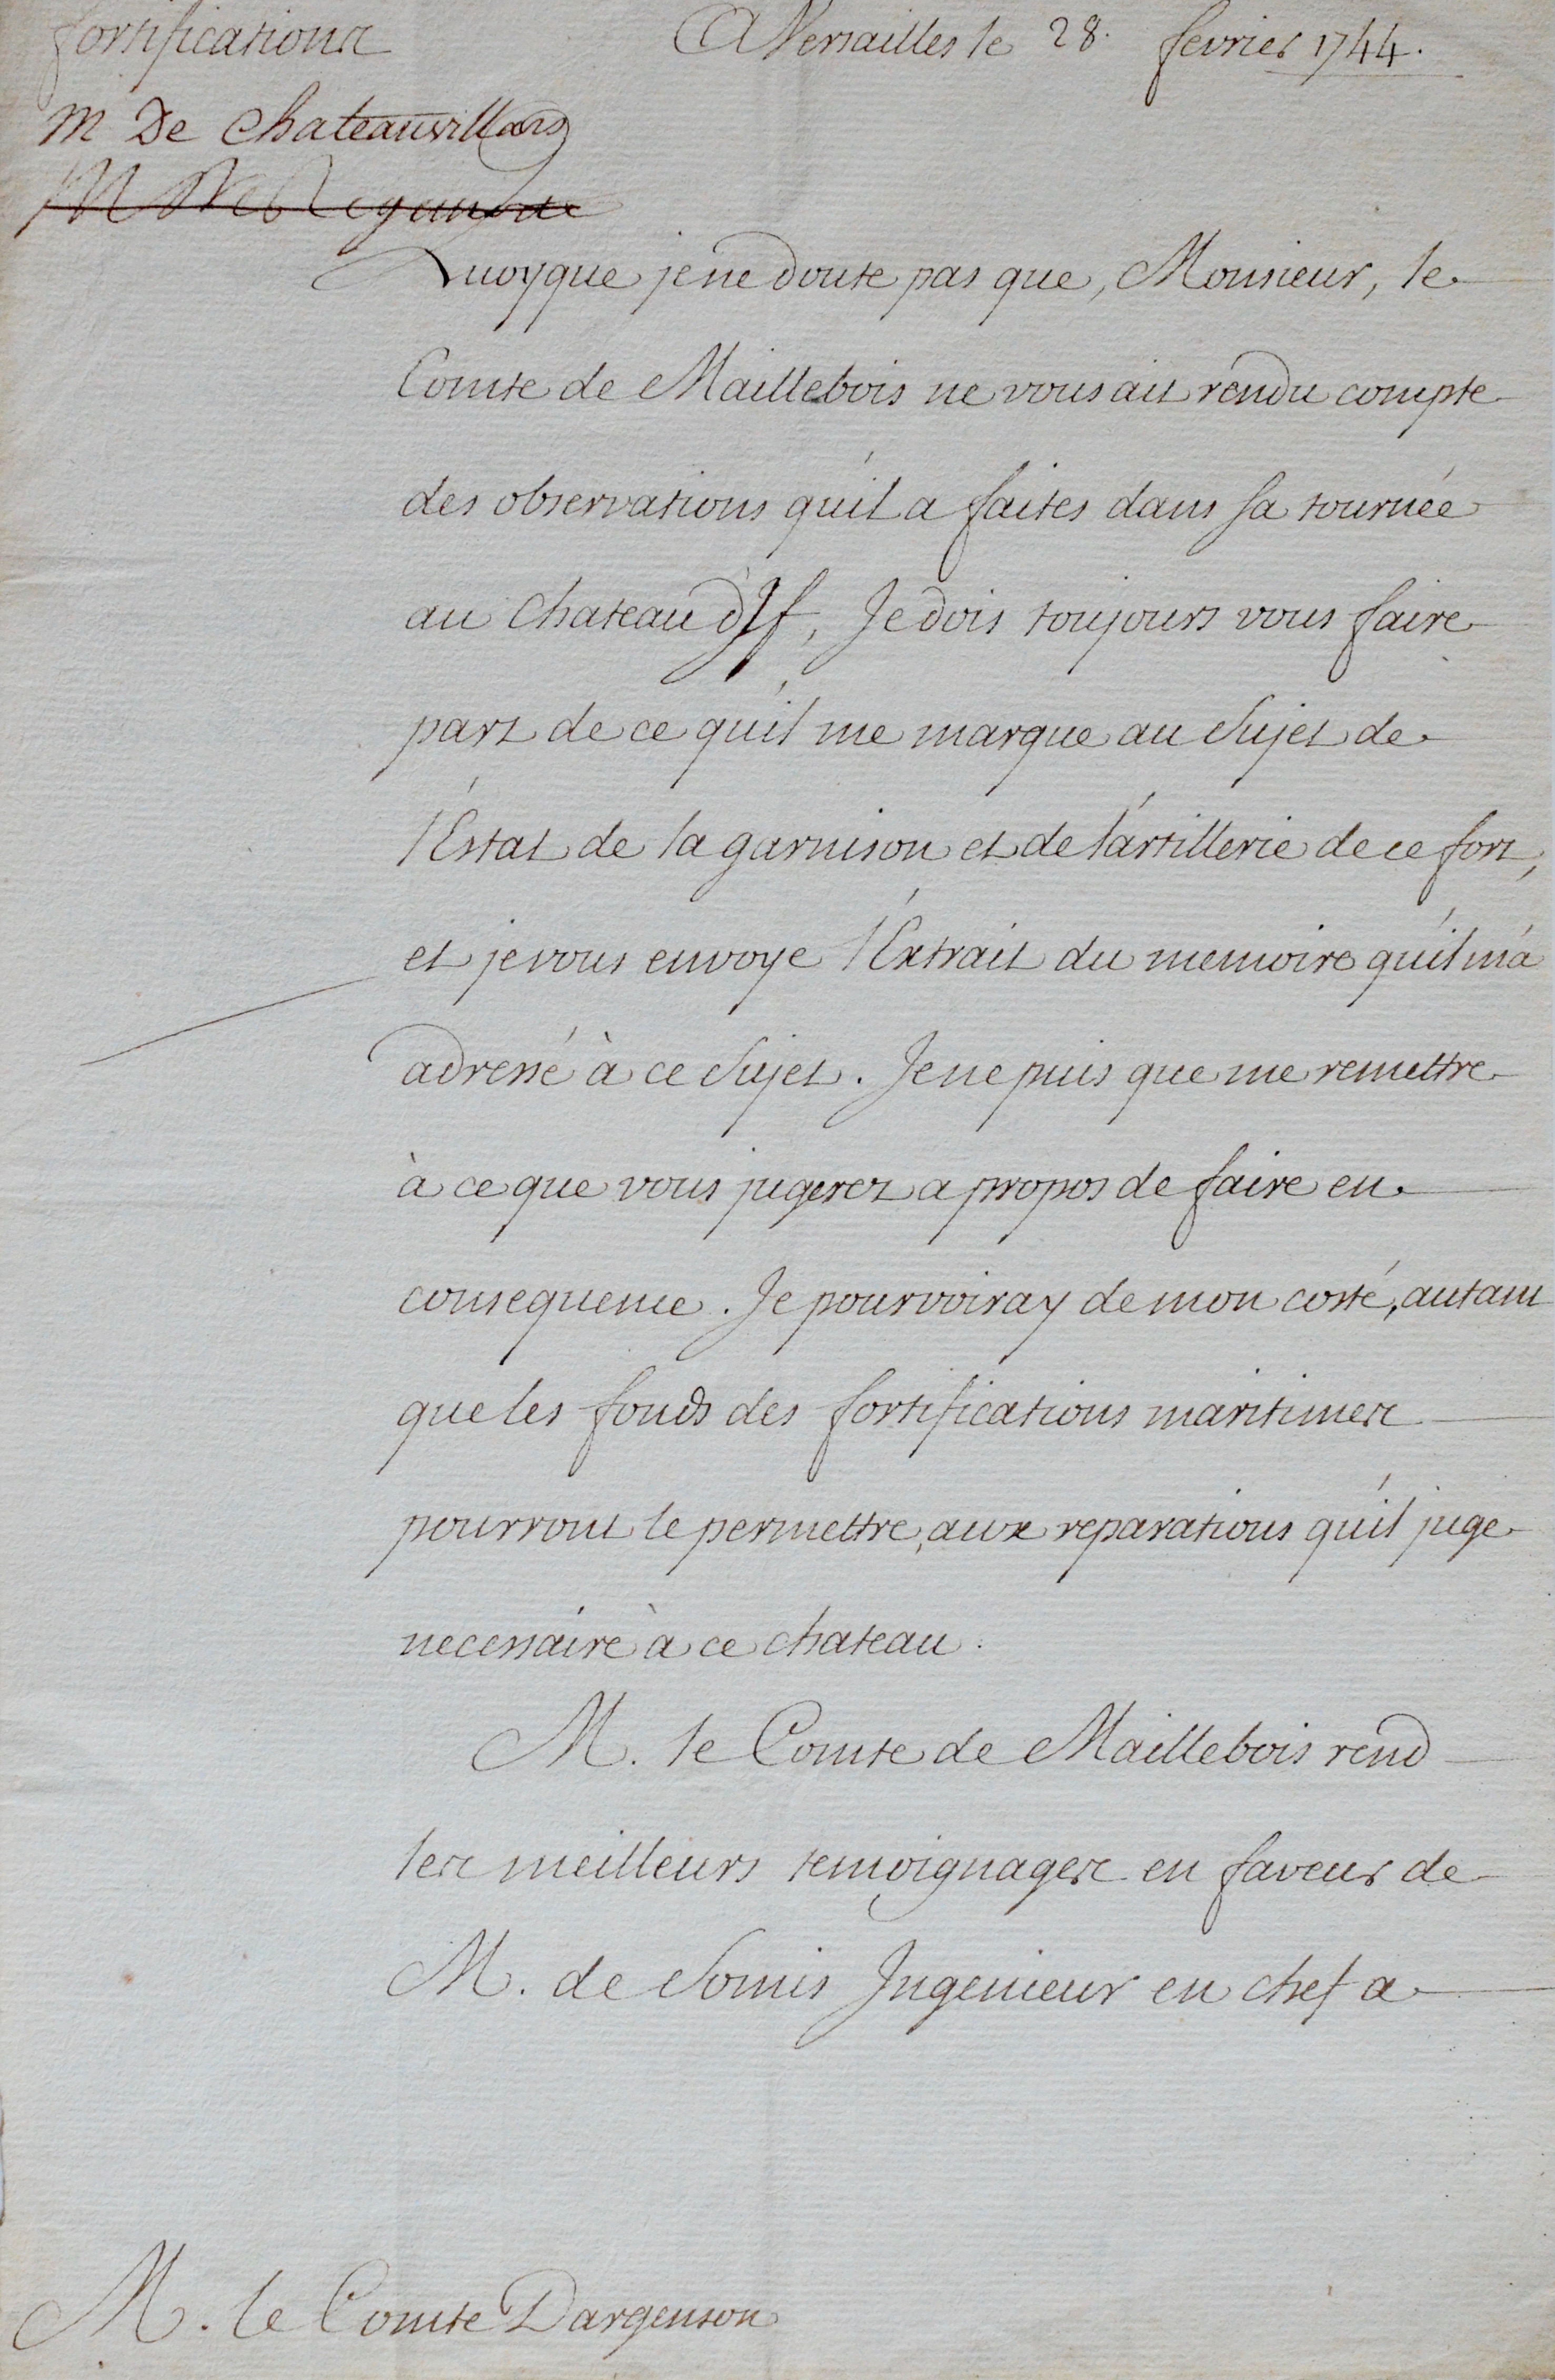 fortifications
A Versailles le 28. fevrier 1744.
M De Chateauvillars
M
Quoyque je ne doute pas que, Monsieur, le
Comte de Maillebois ne vous ait rendu compte
des observations qu'il a faites dans sa tournée
au Chateau d'If, Je dois toujours vous faire
part de ce qu'il me marque au Sujet de
l'Estat de la garnison et de l'artillerie de ce fort,
et je vous envoye l'Extrait du memoire qu'il m'a
adressé à ce Sujet. Je ne puis que me remettre
à ce que vous jugerez a propos de faire en
consequence. Je pourvoiray de mon costé, autant
que les fonds des fortifications maritimes
pourront le permettre, aux reparations qu'il juge
necessaire à ce chateau.
M. le Comte de Maillebois rend
les meilleurs temoignages en faveur de
M. de Somis Ingenieur en chef a
M. le Comte Dargenson